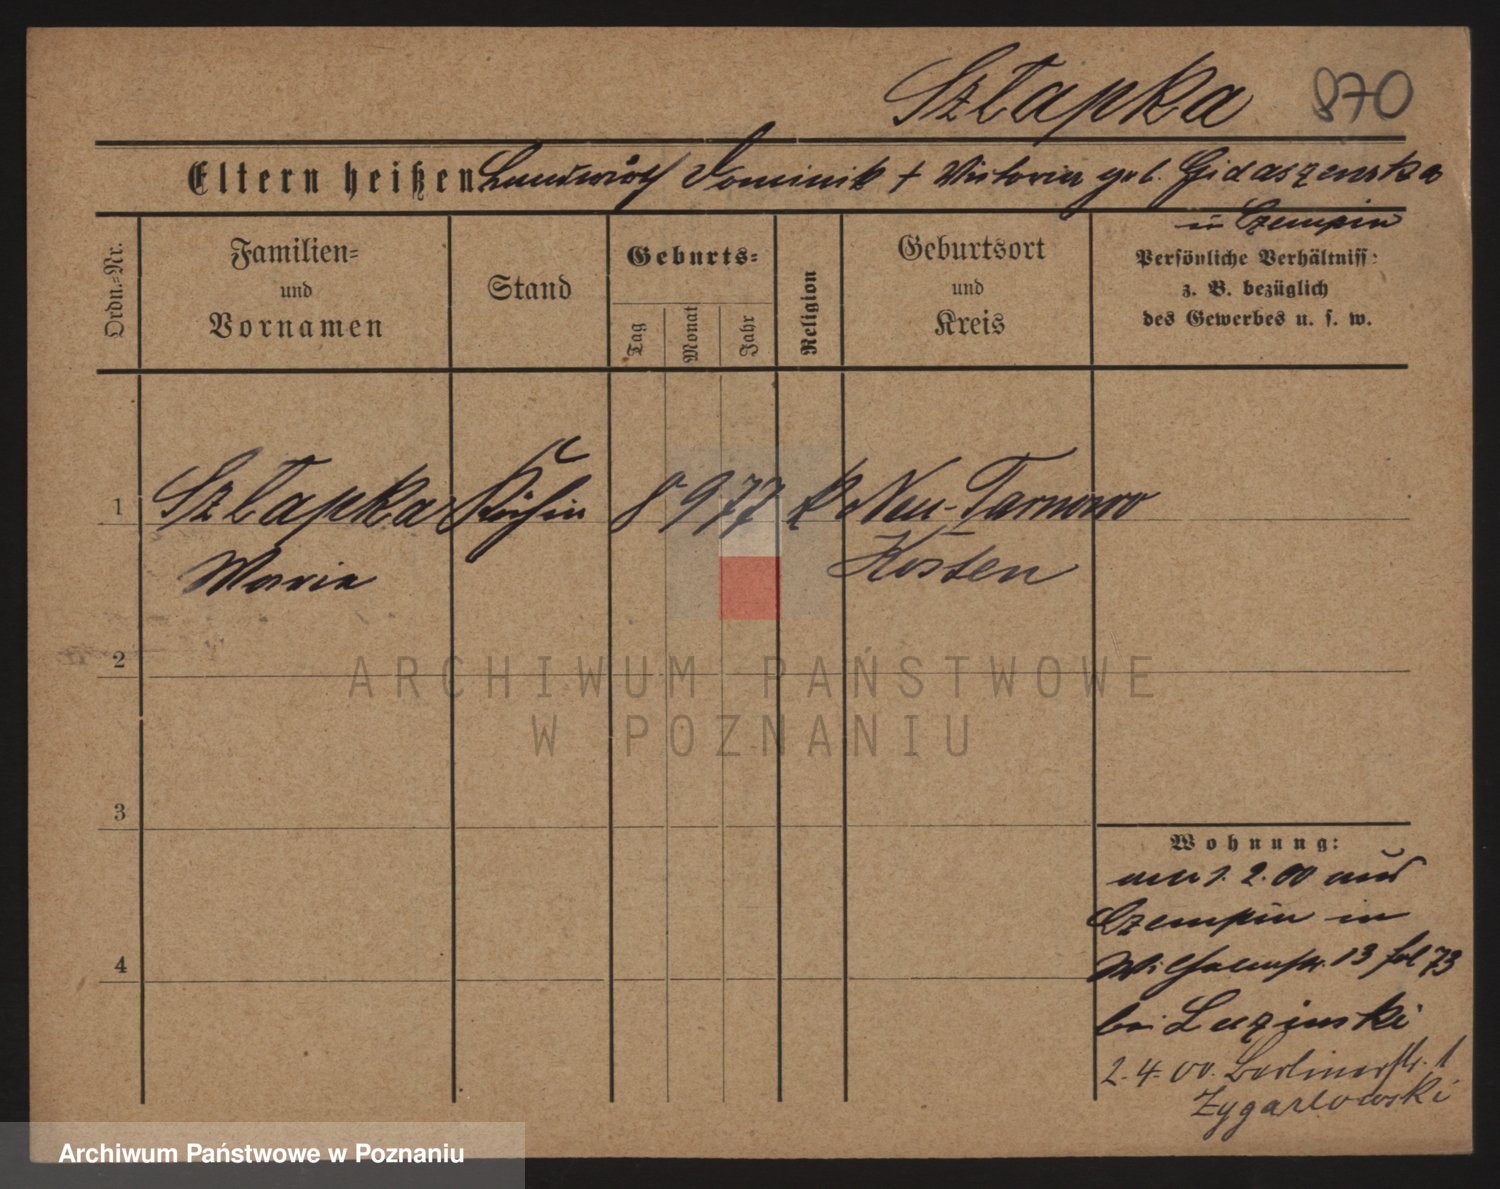 Szłapka 870
Eltern heißen Landwirth Dominik † Victoria geb. Gidaszewska
in Czempin
Ordn.-Nr.
Familien-
und
Vornamen
Stand
Geburts-
Tag
Monat
Jahr
Religion
Geburtsort
und
Kreis
Persönliche Verhältniss-
z. B. bezüglich
des Gewerbes u. s. w.
1 Szłapka Köchin 8 9 77 k Neu-Tarnowo
Maria Kosten
2
3
4
Wohnung:
am 1. 2. 00 aus
Czempin in
Wilhelmstr. 13 fol 73
bei Luzinski
2. 4. 00. Berlinerstr. 1
Zygarlowski
ARCHIWUM PAŃSTWOWE
W POZNANIU
Archiwum Państwowe w Poznaniu